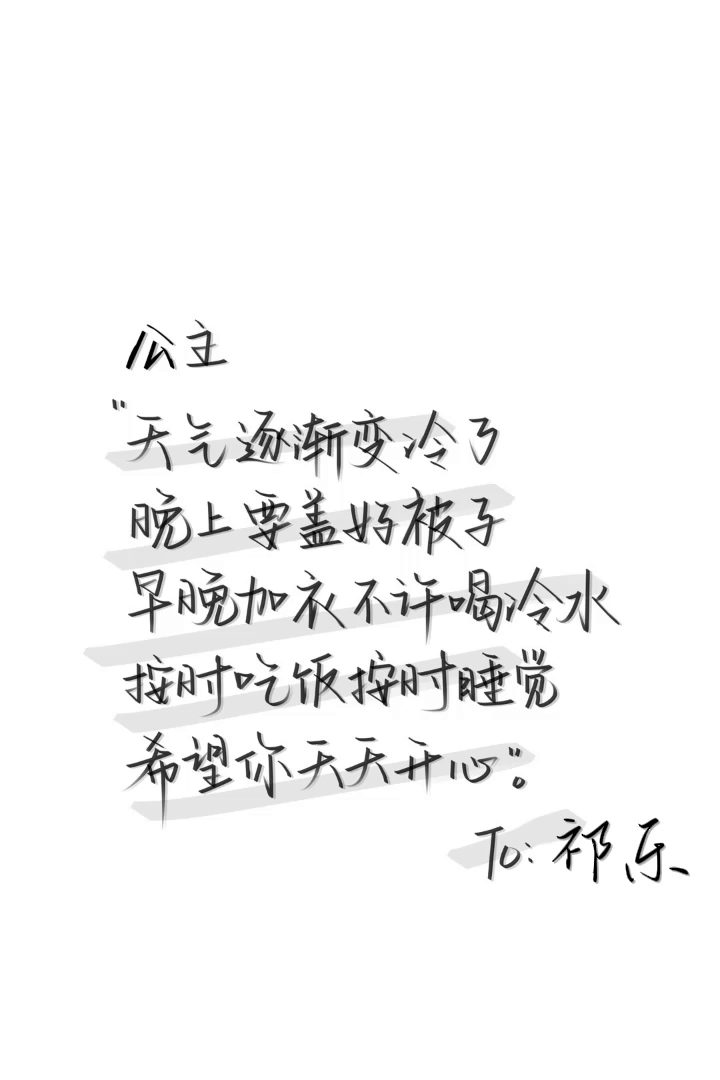 公主
"天气逐渐变冷了
晚上要盖好被子
早晚加衣不许喝冷水
按时吃饭按时睡觉
希望你天天开心"。
To: 祁乐